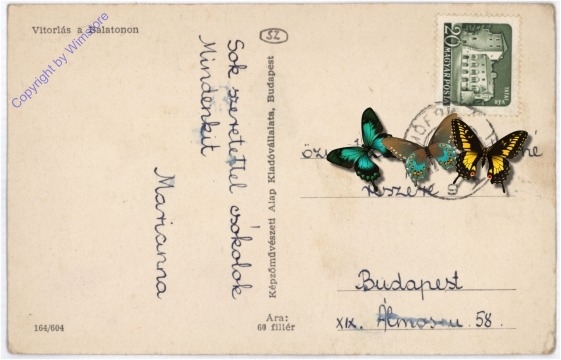 Vitorlás a Balatonon
Copyright by Wimstore
Sok szeretettel csókolok
Mindenkit
Marianna
164/604
SZ
Képzőművészeti Alap Kiadóvállalata, Budapest
Ára:
60 fillér
20
MAGYAR POSTA
TATAI
VÁR
részére
Budapest
XIX.
58.